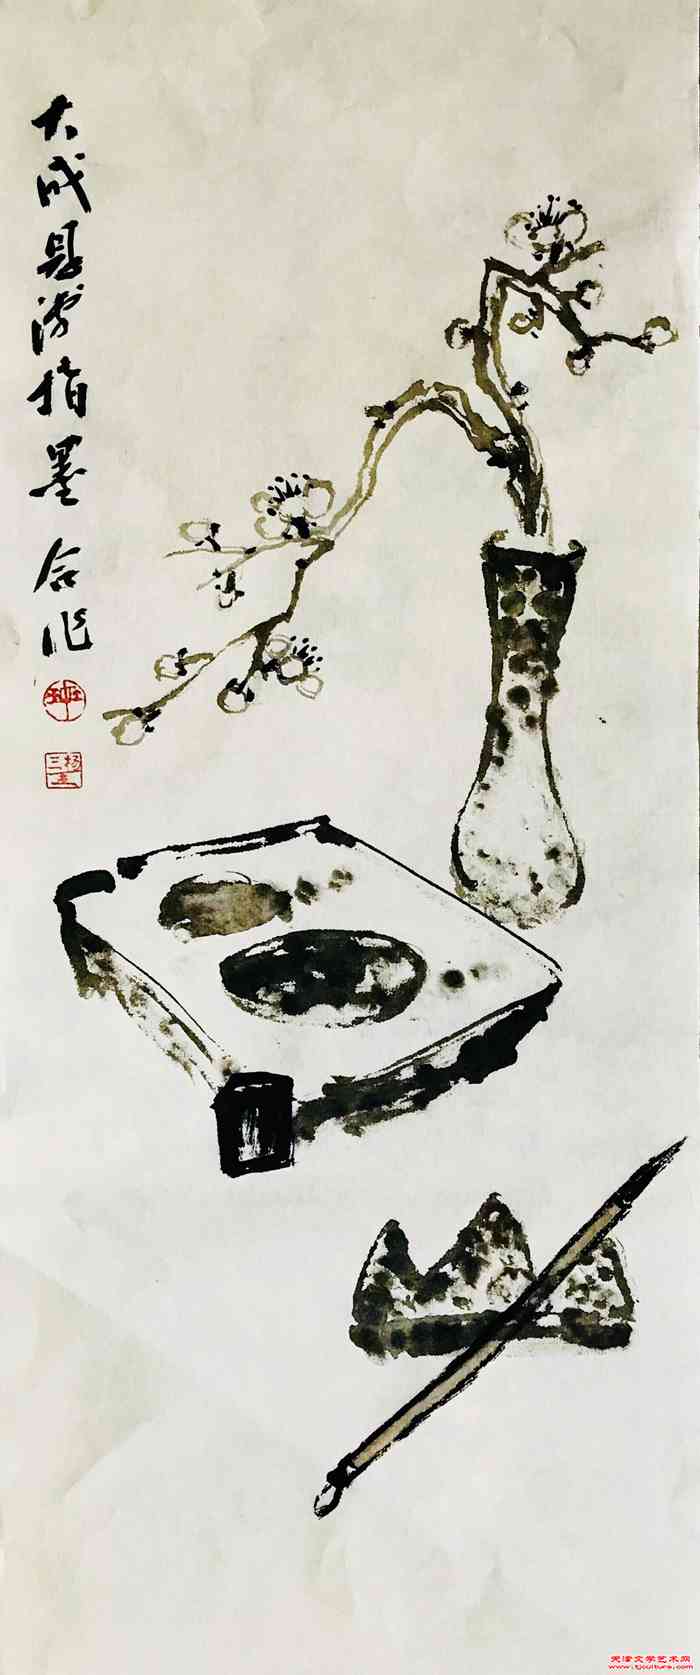 大成昱澐指墨合作
杨三立
天津文学艺术网
www.tjculture.com